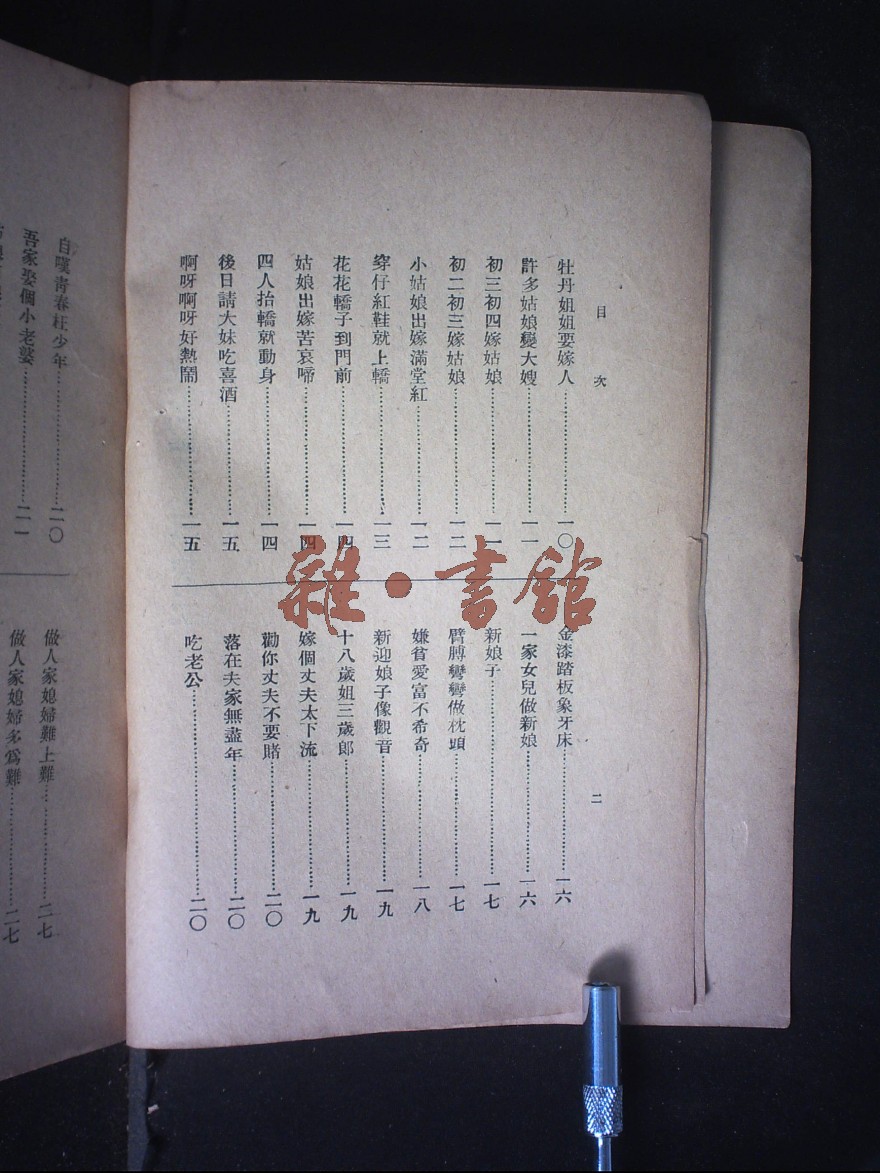 目次
二
牡丹姐姐要嫁人…………一〇
許多姑娘變大嫂…………一一
初三初四嫁姑娘…………一一
初二初三嫁姑娘…………一二
小姑娘出嫁滿堂紅…………一二
穿仔紅鞋就上轎…………一三
花花轎子到門前…………一四
姑娘出嫁苦哀啼…………一四
四人抬轎就動身…………一四
後日請大妹吃喜酒…………一五
啊呀啊呀好熱鬧…………一五
金漆踏板象牙床…………一六
一家女兒做新娘…………一六
新娘子…………一七
臂膊彎彎做枕頭…………一七
嫌貧愛富不希奇…………一八
新迎娘子像觀音…………一九
十八歲姐三歲郎…………一九
嫁個丈夫太下流…………一九
勸你丈夫不要賭…………二〇
落在夫家無盡年…………二〇
吃老公…………二〇
自嘆青春枉少年…………二〇
吾家娶個小老婆…………二一
做人家媳婦難上難…………二七
做人家媳婦多爲難…………二七
雜·書館